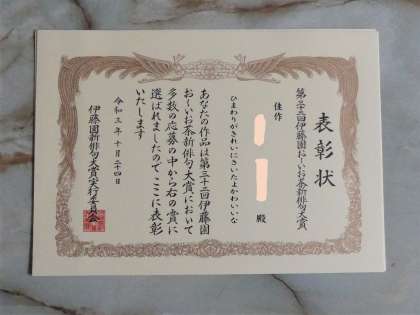 表彰状
第三十二回伊藤園お～いお茶新俳句大賞
佳作
ひまわりがきれいにさいたよかわいいな
殿
あなたの作品は第三十二回伊藤園
お～いお茶新俳句大賞において
多数の応募の中から右の賞に
選ばれましたのでここに表彰
いたします
令和三年十月二十四日
伊藤園新俳句大賞実行委員会